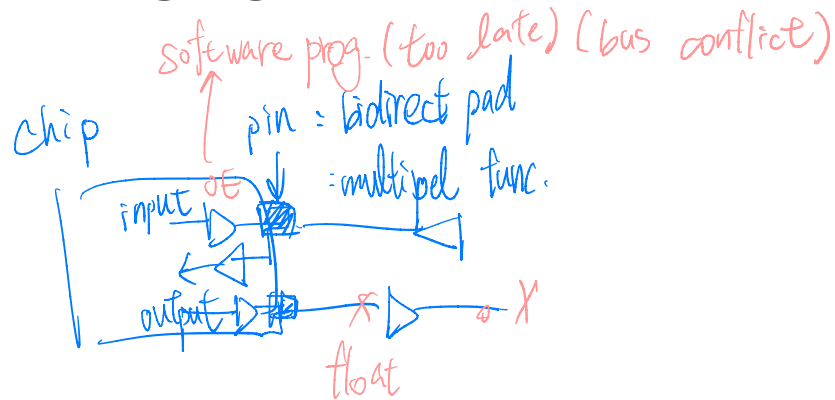 software prog. (too late) (bus conflict)
chip
pin : bidirect pad
: multipel func.
OE
input
output
X
X
float